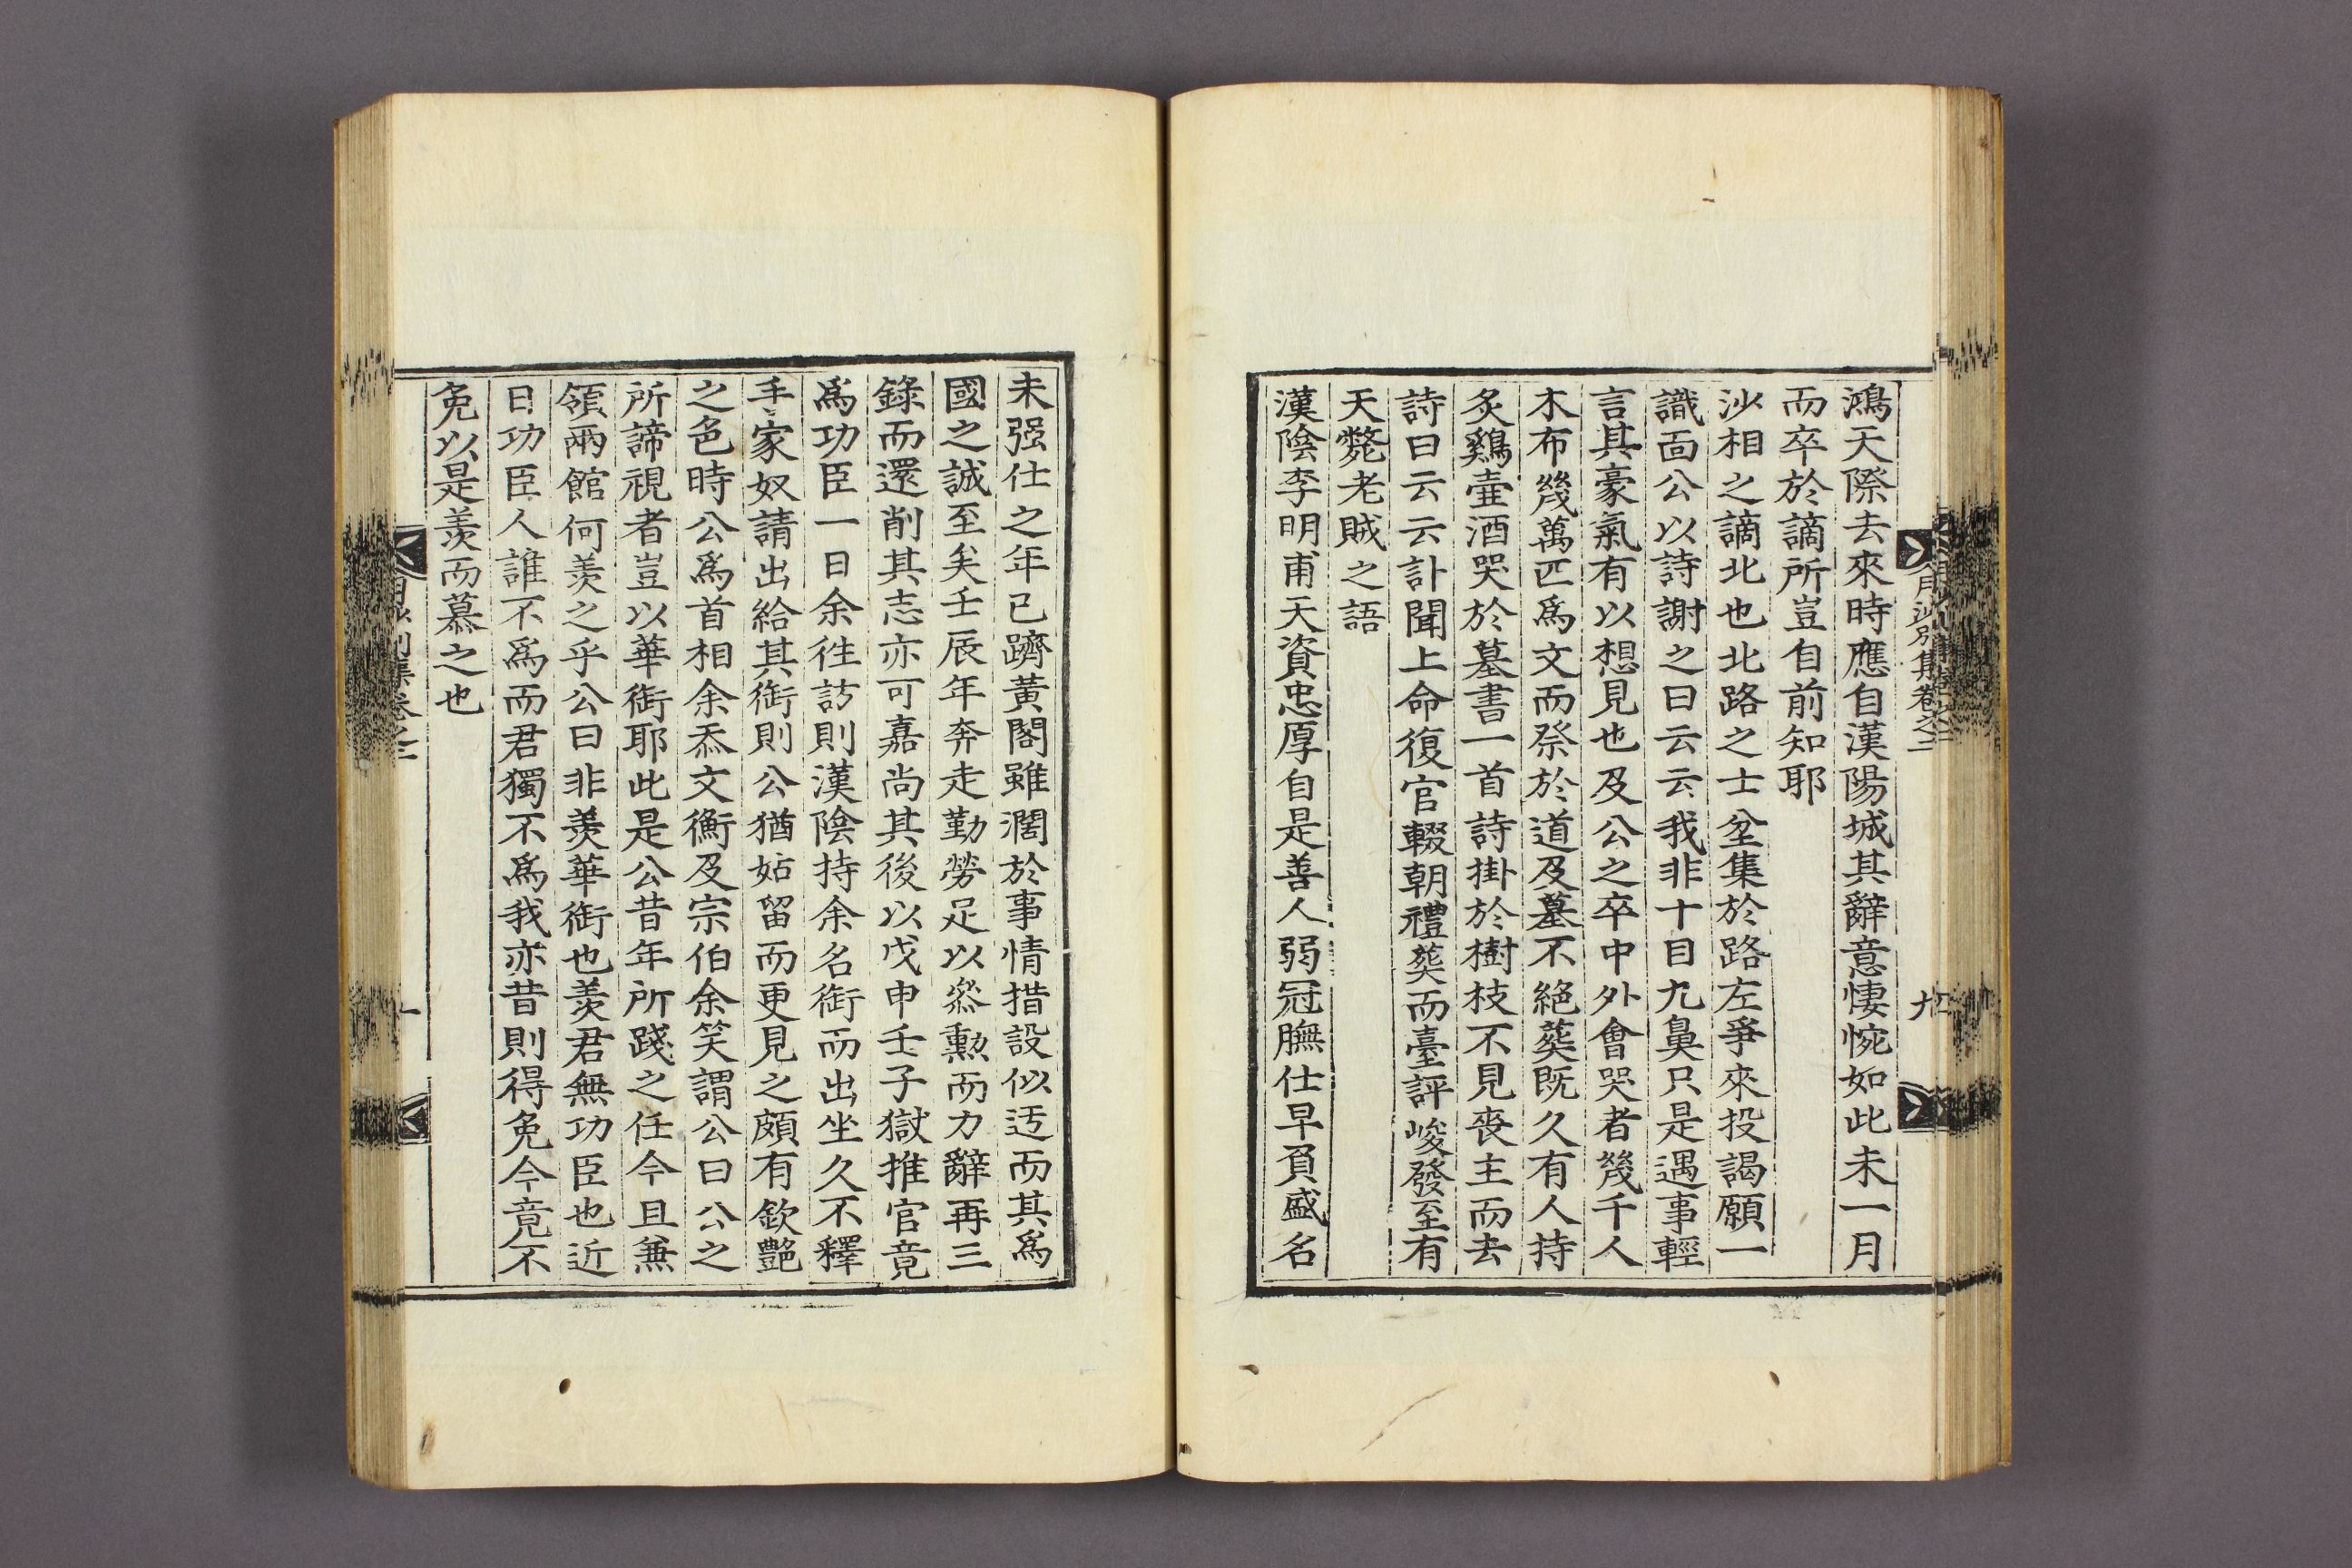 月沙別集卷之二
鴻天際去來時應自漢陽城其辭意悽惋如此未一月
而卒於謫所豈自前知耶
沙相之謫北也北路之士坌集於路左爭來投謁願一
識面公以詩謝之曰云云我非十目九鼻只是遇事輕
言其豪氣有以想見也及公之卒中外會哭者幾千人
木布幾萬匹爲文而祭於道及墓不絕葬既久有人持
炙鷄壷酒哭於墓書一首詩掛於樹枝不見喪主而去
詩曰云云訃聞上命復官輟朝禮葬而臺評峻發至有
天斃老賊之語
漢陰李明甫天資忠厚自是善人弱冠膴仕早負盛名
未强仕之年已躋黃閣雖濶於事情措設似迂而其爲
國之誠至矣壬辰年奔走勤勞足以叅勳而力辭再三
錄而還削其志亦可嘉尚其後以戊申壬子獄推官竟
爲功臣一日余徃訪則漢陰持余名銜而出坐久不釋
手家奴請出給其銜則公猶姑留而更見之頗有欽艶
之色時公爲首相余忝文衡及宗伯余笑謂公曰公之
所諦視者豈以華銜耶此是公昔年所踐之任今且兼
領兩館何羨之乎公曰非羨華銜也羨君無功臣也近
日功臣人誰不爲而君獨不爲我亦昔則得免今竟不
免以是羨而慕之也